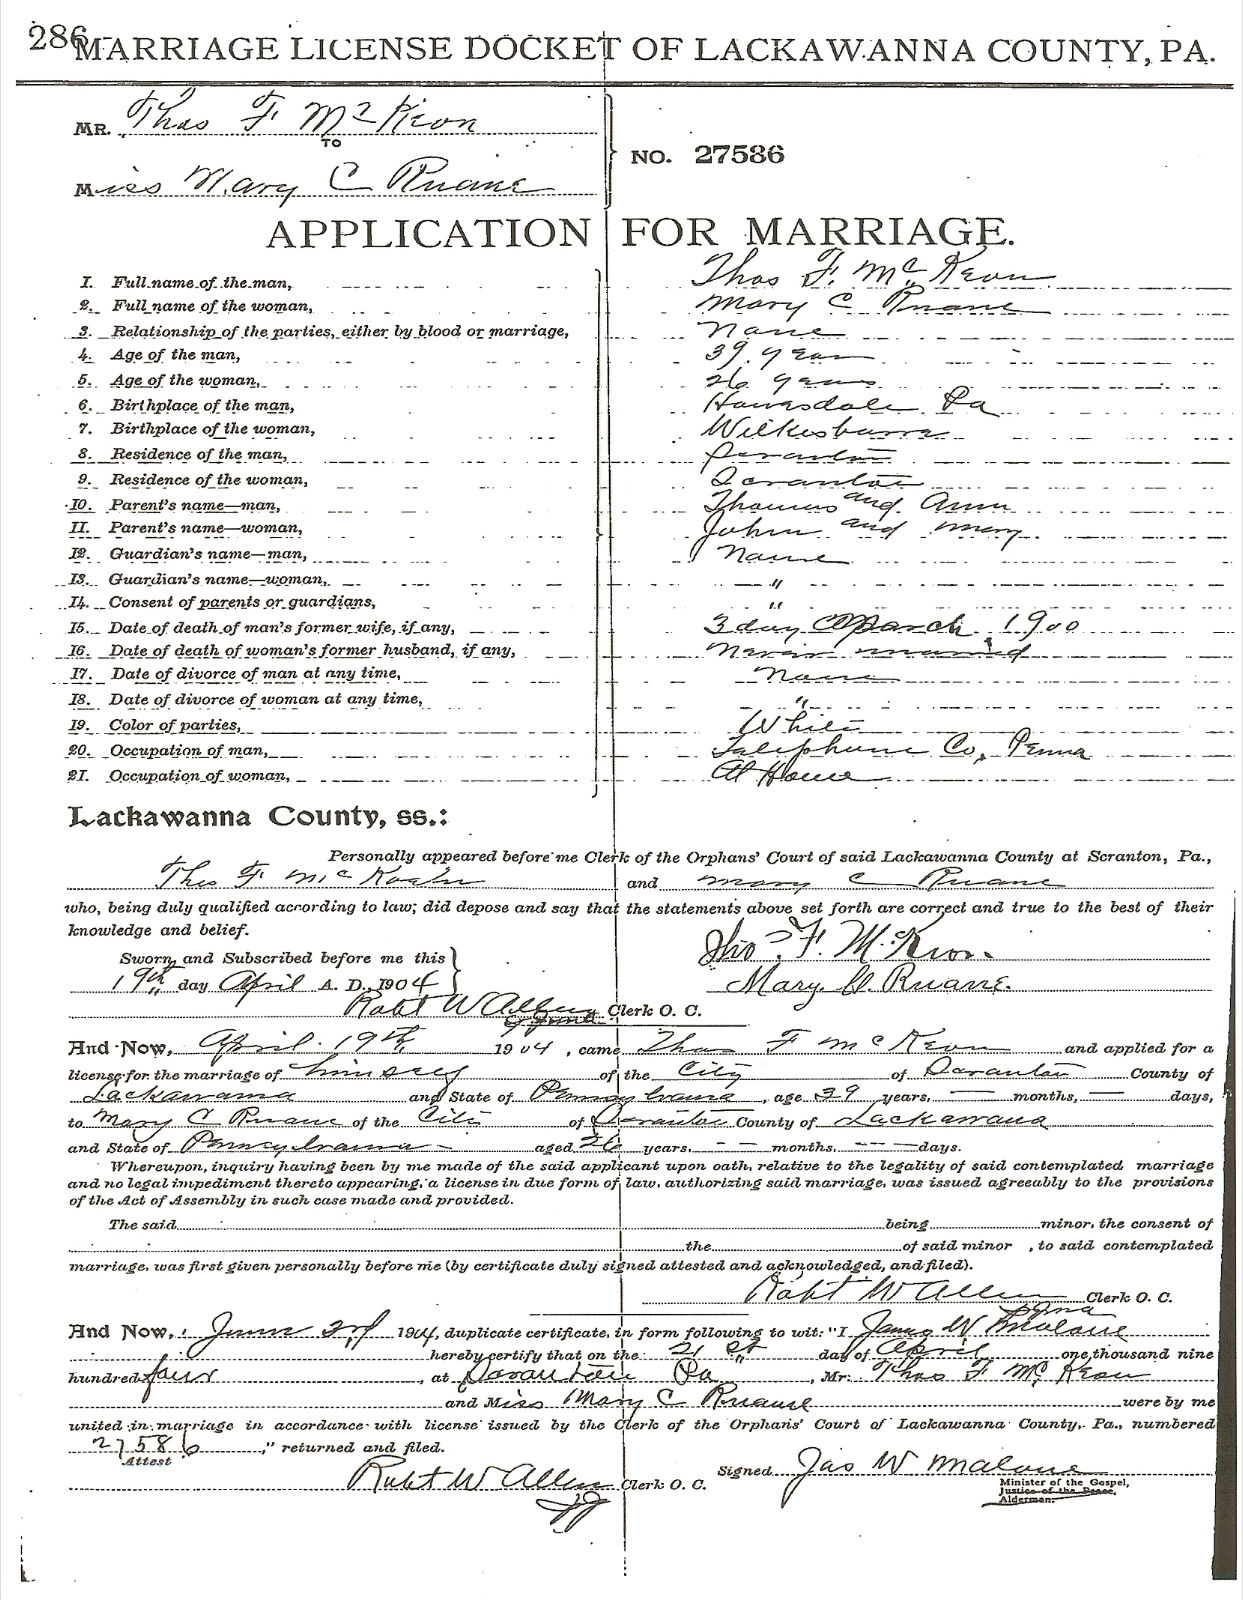 286
MARRIAGE LICENSE DOCKET OF LACKAWANNA COUNTY, PA.
MR. Thos F. McKeon
TO
NO. 27586
Miss Mary C Ruane
APPLICATION FOR MARRIAGE.
1. Full name of the man, Thos F. McKeon
2. Full name of the woman, Mary C Ruane
3. Relationship of the parties, either by blood or marriage, None
4. Age of the man, 39 years
5. Age of the woman, 26 years
6. Birthplace of the man, Pa
7. Birthplace of the woman, Wilkesbarre
8. Residence of the man, Scranton
9. Residence of the woman, Scranton
10. Parent's name—man, Thomas and Ann
11. Parent's name—woman, John and Mary
12. Guardian's name—man, None
13. Guardian's name—woman, "
14. Consent of parents or guardians, "
15. Date of death of man's former wife, if any, 3 day March 1900
16. Date of death of woman's former husband, if any, Never married
17. Date of divorce of man at any time, None
18. Date of divorce of woman at any time, "
19. Color of parties, White
20. Occupation of man, Telephone Co, Penna
21. Occupation of woman, At Home
Lackawanna County, ss.:
Personally appeared before me Clerk of the Orphans' Court of said Lackawanna County at Scranton, Pa.,
Thos F McKeon and Mary C Ruane
who, being duly qualified according to law; did depose and say that the statements above set forth are correct and true to the best of their
knowledge and belief.
Thos. F. McKeon.
Sworn and Subscribed before me this
19th day April A. D., 1904
Mary C. Ruane.
Robt W Allen Clerk O. C.
And Now, April 19th 1904, came Thos F McKeon and applied for a
license for the marriage of himself of the City of Scranton County of
Lackawanna and State of Pennsylvania, age 39 years, — months, — days,
to Mary C Ruane of the City of Scranton County of Lackawana
and State of Pennsylvania aged 26 years, - - months, - - - days.
Whereupon, inquiry having been by me made of the said applicant upon oath, relative to the legality of said contemplated marriage
and no legal impediment thereto appearing, a license in due form of law, authorizing said marriage, was issued agreeably to the provisions
of the Act of Assembly in such case made and provided.
The said being minor, the consent of
the of said minor , to said contemplated
marriage, was first given personally before me (by certificate duly signed attested and acknowledged, and filed).
Robt W Allen Clerk O. C.
And Now, June 1904, duplicate certificate, in form following to wit: "I James W Malone
hereby certify that on the 21st day of April one thousand nine
hundred four, at Scranton Pa, Mr. Thos F McKeon
and Miss Mary C Ruane were by me
united in marriage in accordance with license issued by the Clerk of the Orphans' Court of Lackawanna County, Pa., numbered
27586," returned and filed.
Attest
Robt W Allen Clerk O. C.
Signed Jas W Malone
Minister of the Gospel,
Justice of the Peace,
Alderman.